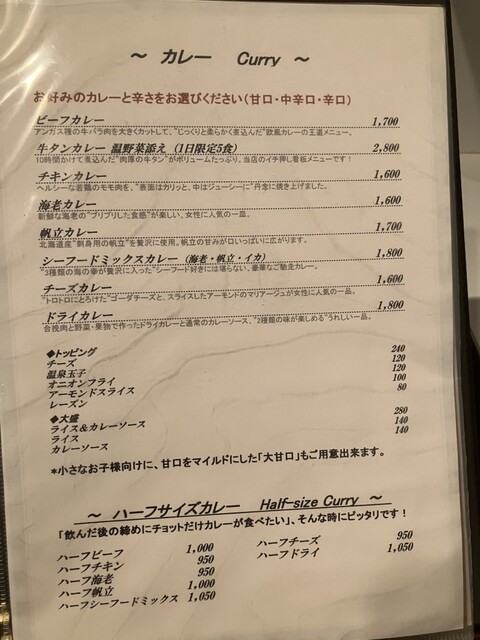 ～ カレー Curry ～
お好みのカレーと辛さをお選びください（甘口・中辛口・辛口）
ビーフカレー 1,700
アンガス種の牛バラ肉を大きくカットして、"じっくりと柔らかく煮込んだ"欧風カレーの王道メニュー。
牛タンカレー 温野菜添え（1日限定5食） 2,800
10時間かけて煮込んだ"肉厚の牛タン"がボリュームたっぷり。当店のイチ押し看板メニューです！
チキンカレー 1,600
ヘルシーな若鶏のモモ肉を、"表面はカリッと、中はジューシーに"丹念に焼き上げました。
海老カレー 1,600
新鮮な海老の"プリプリした食感"が楽しい、女性に人気の一皿。
帆立カレー 1,700
北海道産"刺身用の帆立"を贅沢に使用。帆立の甘みが口いっぱいに広がります。
シーフードミックスカレー（海老・帆立・イカ） 1,800
"3種類の海の幸が贅沢に入った"シーフード好きには堪らない、豪華なご馳走カレー。
チーズカレー 1,600
"トロトロにとろけた"ゴーダチーズと、スライスしたアーモンドのマリアージュが女性に人気の一品。
ドライカレー 1,800
合挽肉と野菜・果物で作ったドライカレーと通常のカレーソース、"2種類の味が楽しめる"うれしい一品。
◆トッピング
チーズ 240
温泉玉子 120
オニオンフライ 120
アーモンドスライス 100
レーズン 80
◆大盛
ライス＆カレーソース 280
ライス 140
カレーソース 140
＊小さなお子様向けに、甘口をマイルドにした「大甘口」もご用意出来ます。
～ ハーフサイズカレー Half-size Curry ～
「飲んだ後の締めにチョットだけカレーが食べたい」、そんな時にピッタリです！
ハーフビーフ 1,000
ハーフチキン 950
ハーフ海老 950
ハーフ帆立 1,000
ハーフシーフードミックス 1,050
ハーフチーズ 950
ハーフドライ 1,050